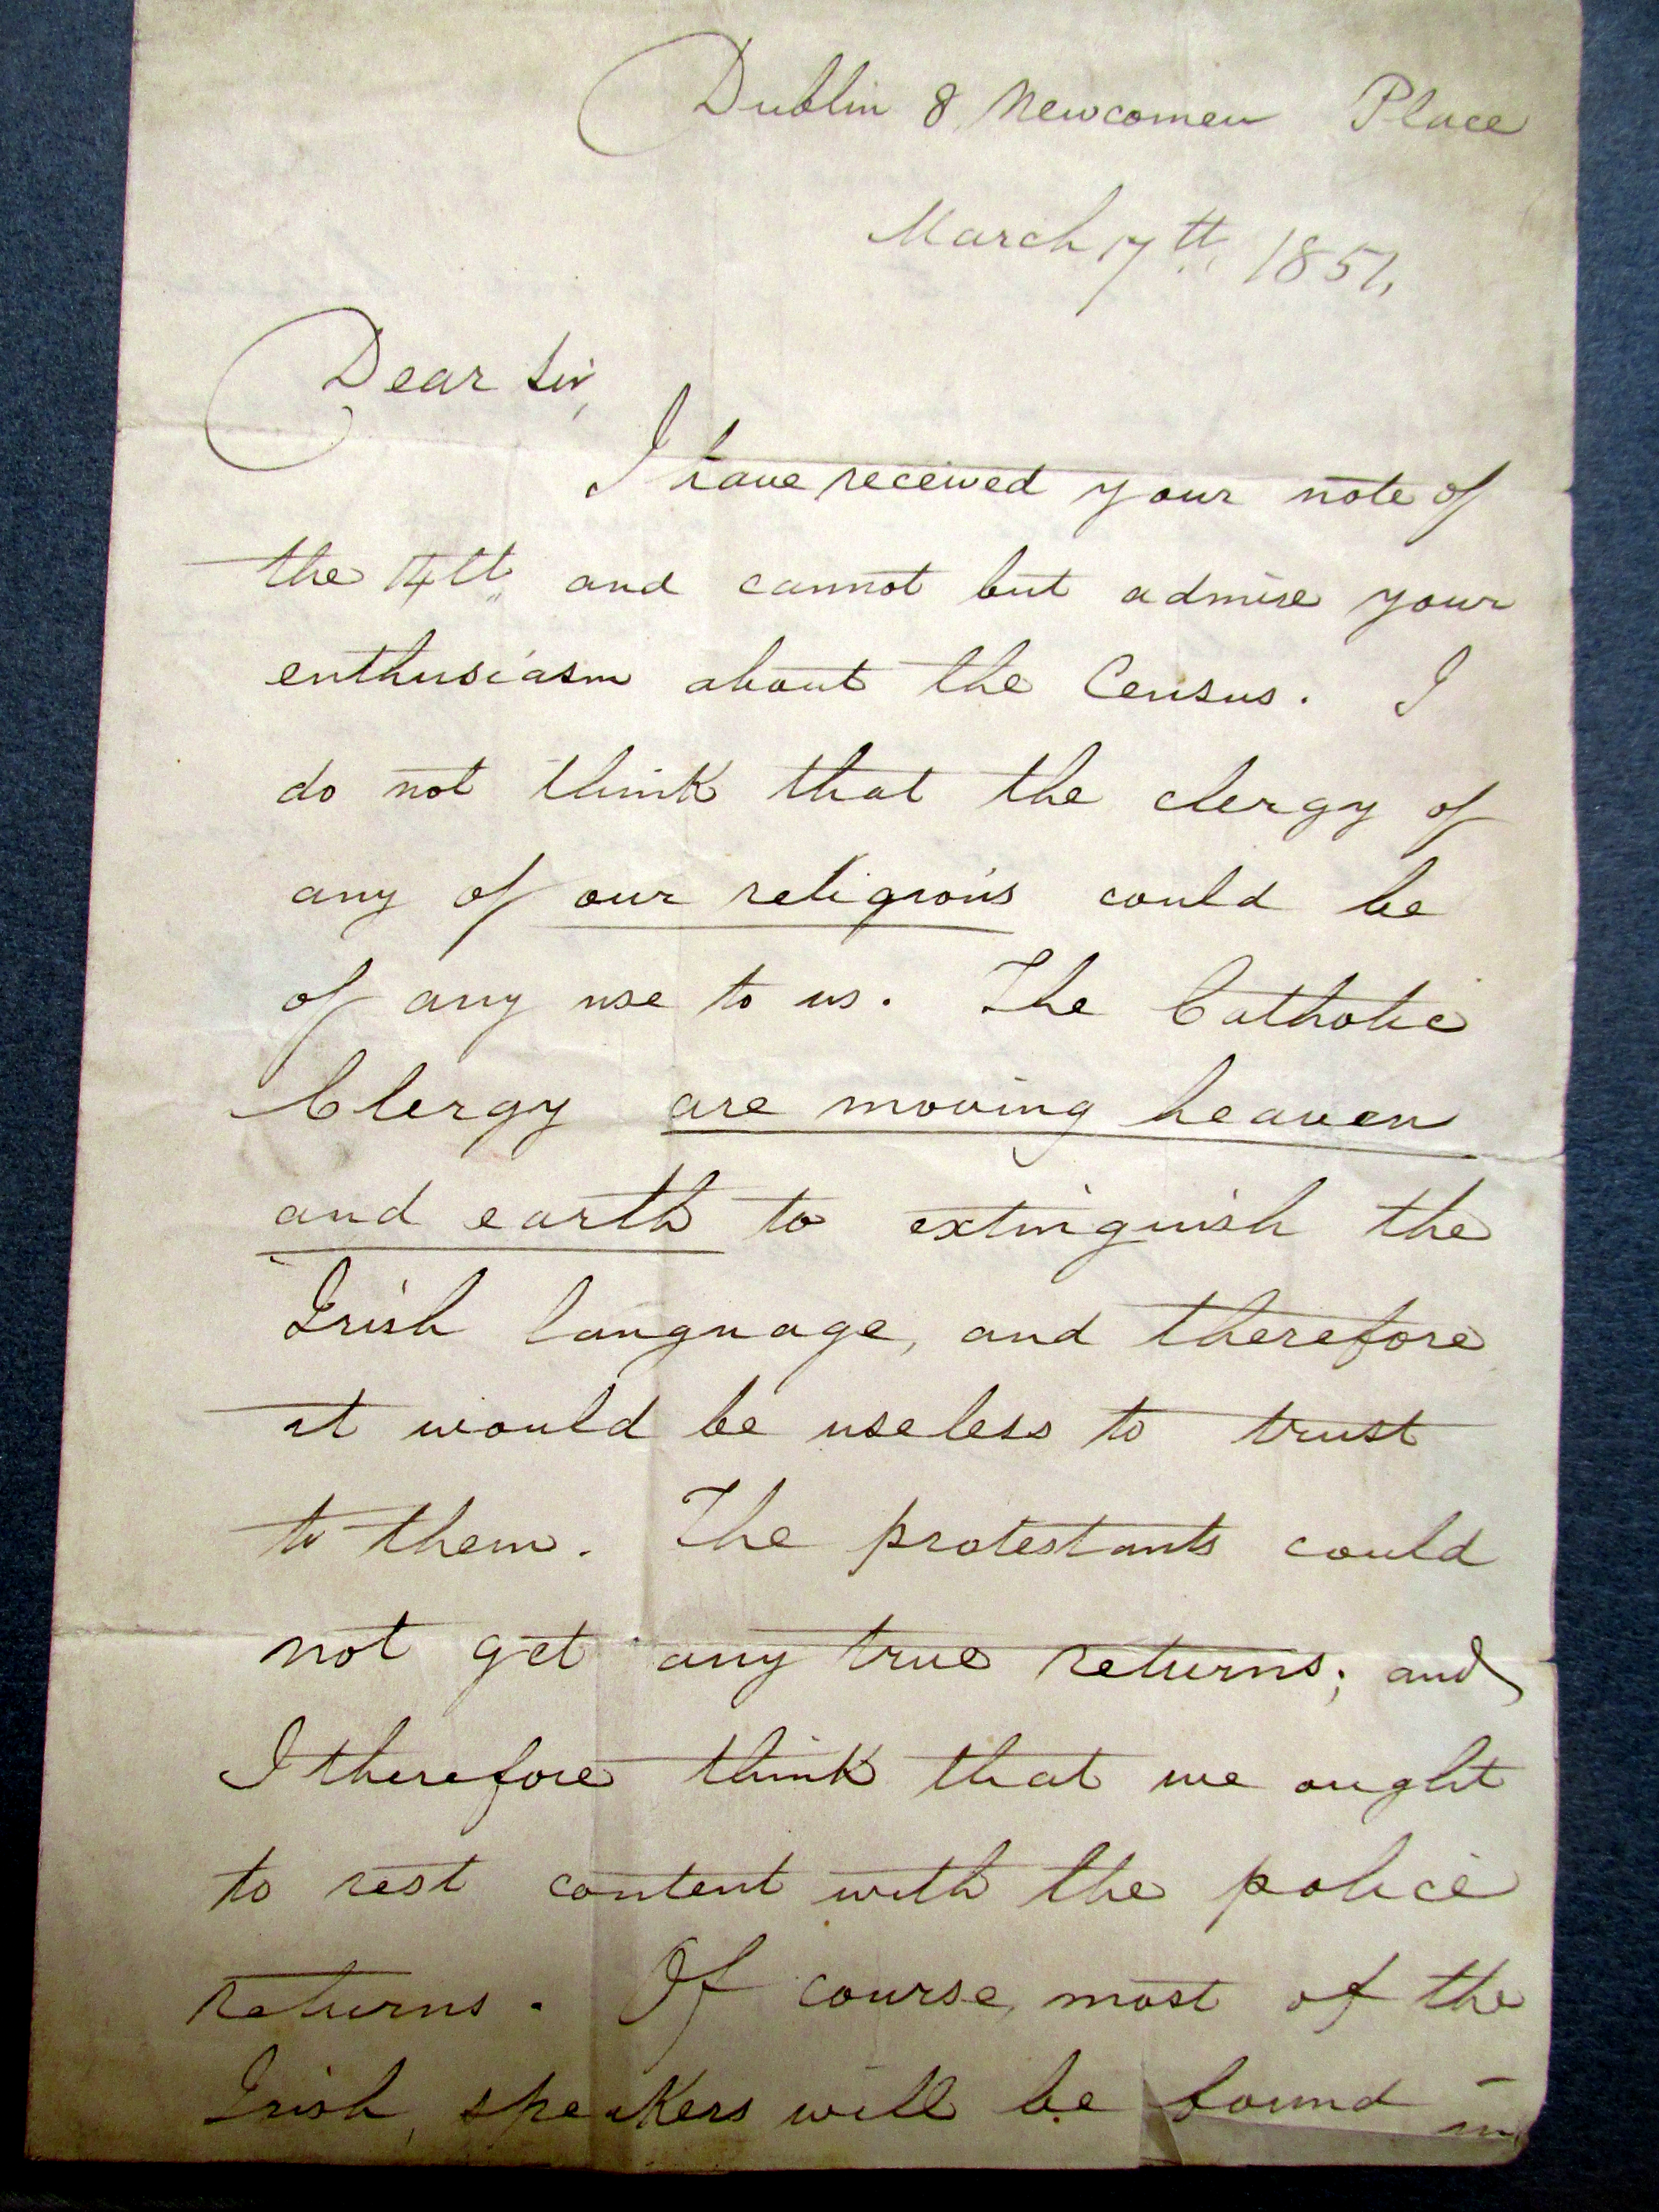 Dublin 8 Newcomen Place
March 17th 1851,
Dear Sir,
I have received your note of
the 14th and cannot but admire your
enthusiasm about the Census. I
do not think that the clergy of
any of our religions could be
of any use to us. The Catholic
Clergy are moving heaven
and earth to extinguish the
Irish language, and therefore
it would be useless to trust
to them. The protestants could
not get any true returns; and
I therefore think that we ought
to rest content with the police
returns. Of course, most of the
Irish speakers will be found in